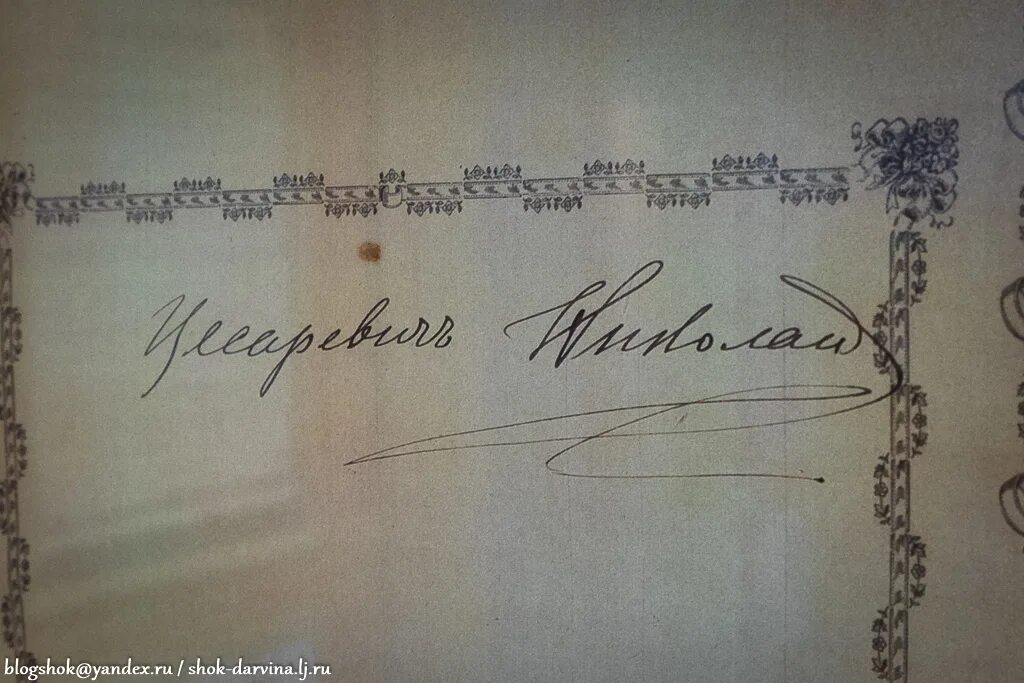 Цесаревичъ Николай
blogshok@yandex.ru / shok-darvina.lj.ru